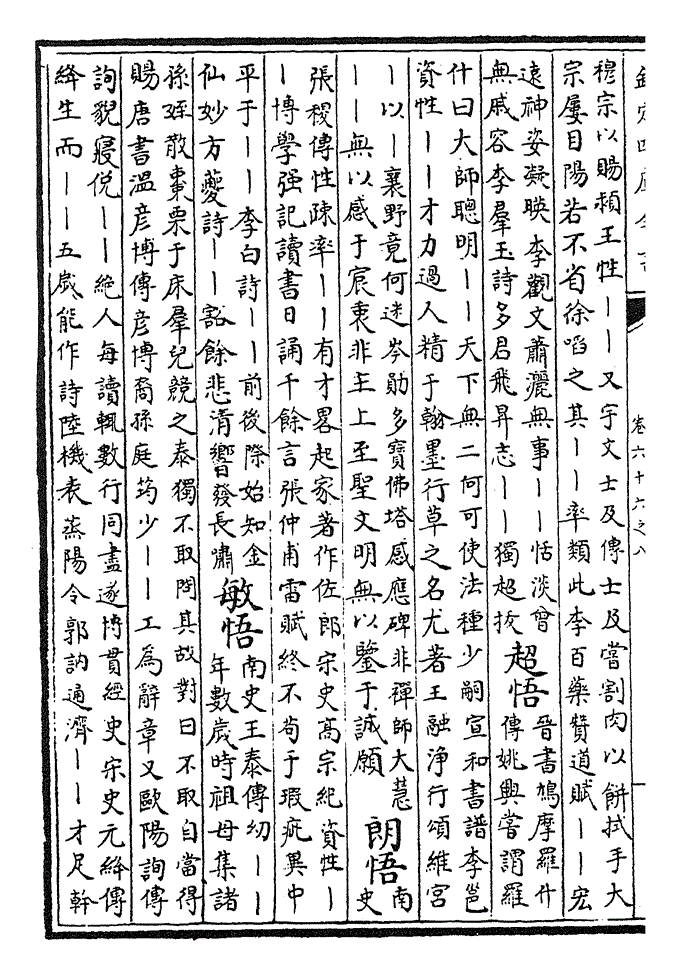 欽定四庫全書
卷六十六之八
穆宗以賜頖王性——又宇文士及傳士及嘗割肉以餅拭手大
宗屢目陽若不省徐啗之其——率類此李百藥贊道賦——宏
遠神姿凝暎李觀文蕭灑無事——恬淡曾
無戚容李羣玉詩多君飛昇志——獨超拔
超悟
晉書鳩摩羅什
傳姚興嘗謂羅
什曰大師聰明——天下無二何可使法種少嗣宣和書譜李邕
資性——才力過人精于翰墨行草之名尤著王融淨行頌維宮
—以—襄野竟何迷岑勛多寶佛塔感應碑非禪師大慧
——無以感于宸衷非主上至聖文明無以鑒于誠願
朗悟
南
史
張稷傳性疎率——有才畧起家著作佐郎宋史高宗紀資性—
—博學强記讀書日誦千餘言張仲甫雷賦終不苟于瑕疵異中
平于——李白詩——前後際始知金
仙妙方夔詩——豁餘悲清響發長嘯
敏悟
南史王泰傳幼——
年數歲時祖母集諸
孫姪散棗栗于床羣兒競之泰獨不取問其故對曰不取自當得
賜唐書溫彥博傳彥博裔孫庭筠少——工為辭章又歐陽詢傳
詢貌寢侻——絶人每讀輒數行同盡遂博貫經史宋史元絳傳
絳生而——五歲能作詩陸機表蒸陽令郭訥通濟——才足幹